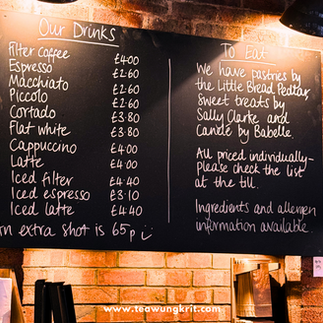 Our Drinks
Filter Coffee £4.00
Espresso £2.60
Macchiato £2.60
Piccolo £2.60
Cortado £3.80
Flat white £3.80
Cappuccino £4.00
Latte £4.00
Iced filter £4.40
Iced espresso £3.10
Iced latte £4.40
an extra shot is 65p
To Eat
We have pastries by
the Little Bread Pedlar,
sweet treats by
Sally Clarke and
Candle by Babelle.
All priced individually-
Please check the list
at the till.
Ingredients and allergen
information available
www.teawungkrit.com